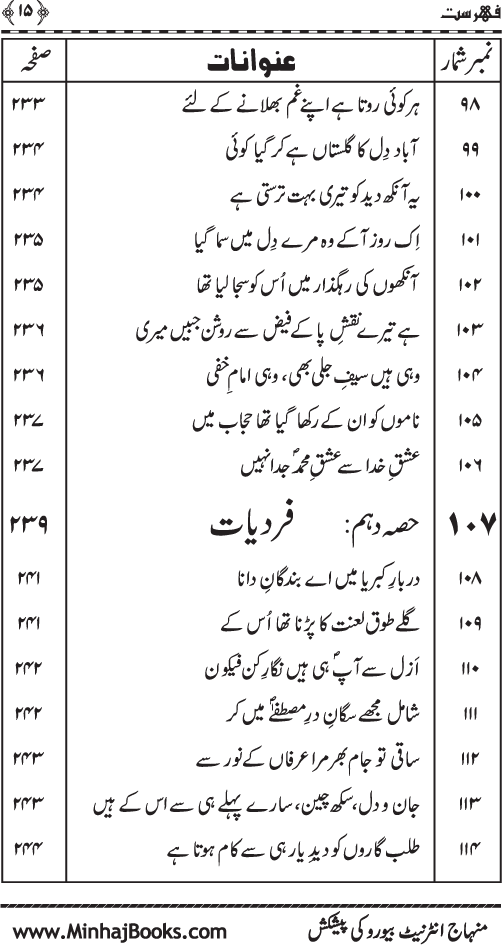 فہرست ﴿۱۵﴾
نمبر شمار عنوانات صفحہ
۹۸ ہر کوئی روتا ہے اپنے غم بھلانے کے لئے ۲۳۳
۹۹ آباد دِل کا گلستاں ہے کر گیا کوئی ۲۳۴
۱۰۰ یہ آنکھ دید کو تیری بہت ترستی ہے ۲۳۴
۱۰۱ اِک روز آ کے وہ مرے دِل میں سما گیا ۲۳۵
۱۰۲ آنکھوں کی رہگذار میں اُس کو سجا لیا تھا ۲۳۵
۱۰۳ ہے تیرے نقشِ پا کے فیض سے روشن جبیں میری ۲۳۶
۱۰۴ وہی ہیں سیفِ جلی بھی، وہی امامِ خفی ۲۳۶
۱۰۵ ناموں کو ان کے رکھا گیا تھا حجاب میں ۲۳۷
۱۰۶ عشقِ خدا سے عشقِ محمدؐ جدا نہیں ۲۳۷
۱۰۷ حصہ دہم: فردیات ۲۳۹
۱۰۸ دربارِ کبریا میں اے بندگانِ دانا ۲۴۱
۱۰۹ گلے طوق لعنت کا پڑنا تھا اُس کے ۲۴۱
۱۱۰ اَزل سے آپؐ ہی ہیں نگارِ کن فیکون ۲۴۲
۱۱۱ شامل مجھے سگانِ درِ مصطفےٰؐ میں کر ۲۴۲
۱۱۲ ساقی تو جام بھر مرا عرفاں کے نور سے ۲۴۳
۱۱۳ جان و دل، سکھ چین، سارے پہلے ہی سے اس کے ہیں ۲۴۳
۱۱۴ طلب گاروں کو دیدِ یار ہی سے کام ہوتا ہے ۲۴۴
منہاج انٹرنیٹ بیورو کی پیشکش www.MinhajBooks.com